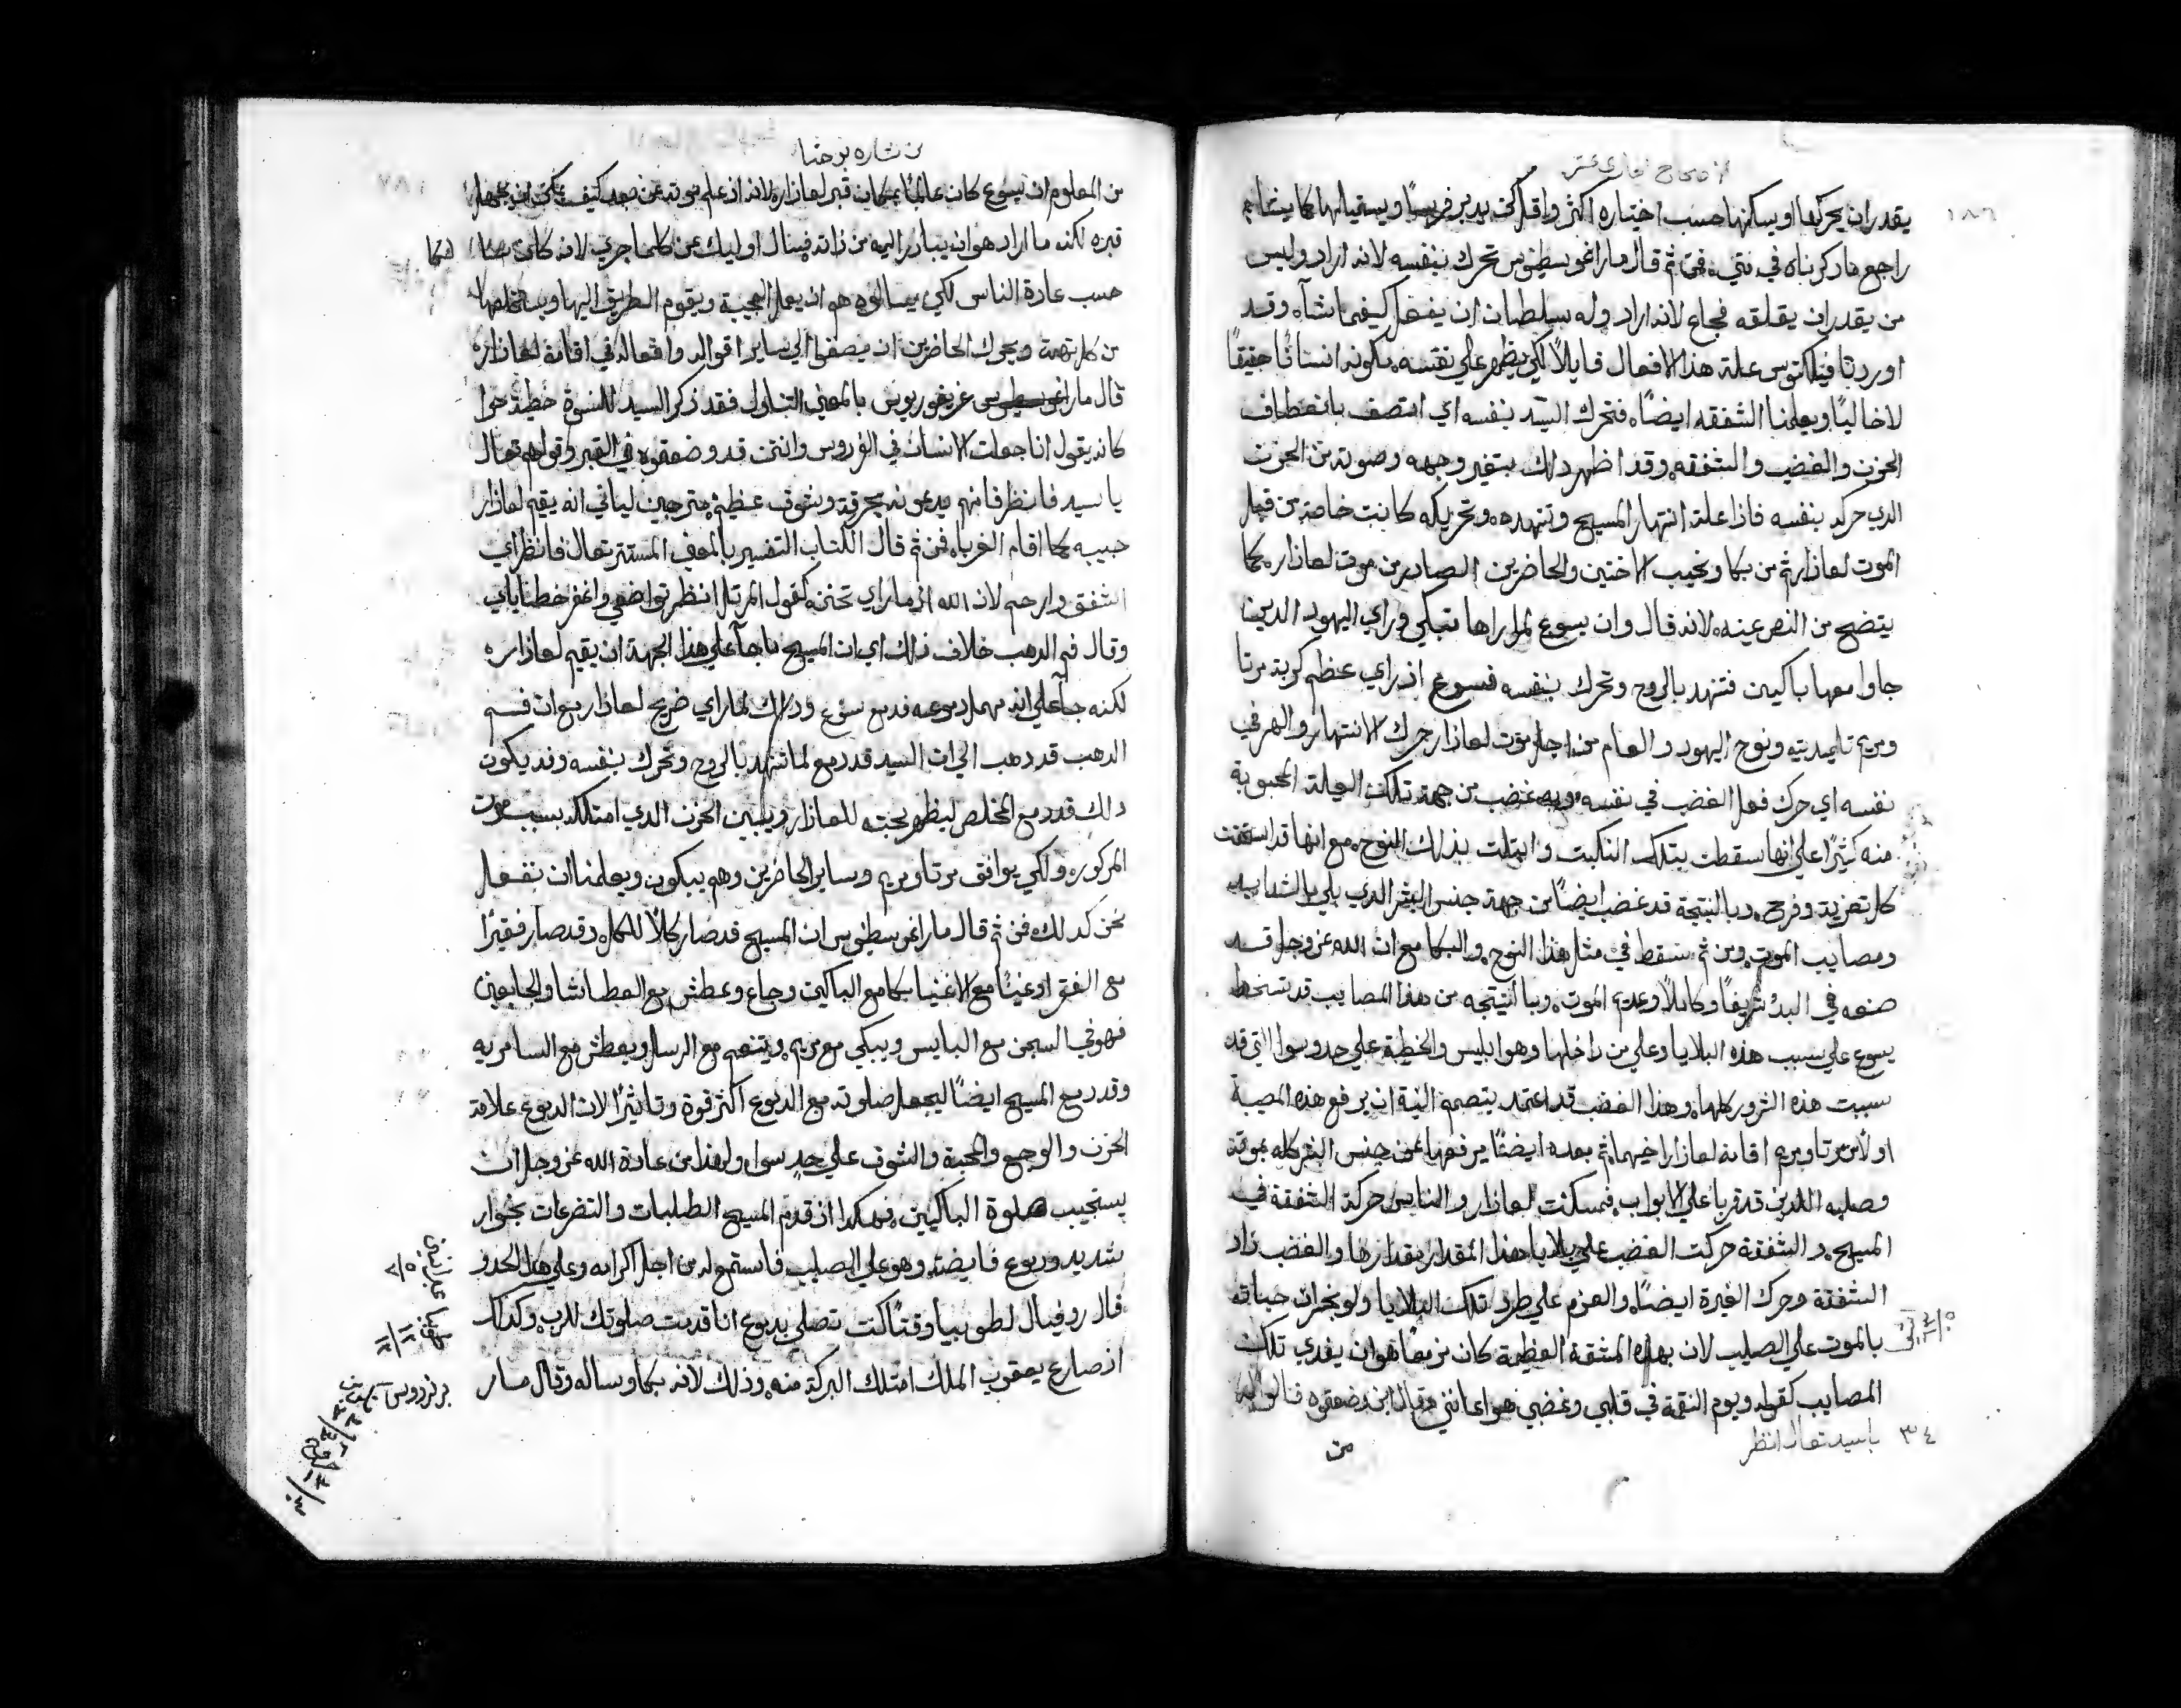 الاصحاح الحادي عشر
١٨٦
يقدر ان يحركها او يسكنها حسب اختياره اكثر واقل كمن يدبر فرسًا ويستميلها كما يشاء
راجع ما ذكرناه في متي فمن ثم قال مار اغوسطينوس تحرك بنفسه لانه اراد وليس
من يقدر ان يقلقه فجاع لانه اراد وله سلطان ان ينفعل كيفما شاء وقد
اورد تاوفيلكتوس علة هذا الافعال قايلًا لكي يظهر علي نفسه بكونه انسانًا حقيقًا
لا خاليًا ويعلمنا الشفقه ايضًا فتحرك السيد بنفسه اي اتصف بانعطاف
الحزن والغضب والشفقه وقد اظهر ذلك بتغير وجهه وصوته من الحزن
الدي حركه بنفسه فاذا علة انتهار المسيح وتنهده وتحريكه كانت خاصة من قبل
الموت لعازار ثم من بكا ونحيب الاختين والحاضرين الصادر من موت لعازار كما
يتضح من النص عينه لانه قال وان يسوع لما راها تبكي وراي اليهود الدين
جاوا معها باكيين فتنهد بالروح وتحرك بنفسه فيسوع اذ راي عظم كربة مرتا
ومريم تلميدتيه ونوح اليهود والعام من اجل موت لعازار حرك الانتهار والهم في
نفسه اي حرك فعل الغضب في نفسه وبه غضب من جهة تلك العيلة المحبوبة
منه كثيرًا علي انها سقطت بتلك النكبت وابتلت بذلك النوح مع انها قد استحقت
كل تعزية وفرح وبالنتيجة قد غضب ايضًا من جهة جنس البشر الدي بلي بالشدايد
ومصايب الموت ومن ثم سقط في مثل هذا النوح والبكا مع ان الله عز وجل قد
صنعه في البدء شريفًا وكاملًا وعديم الموت وبالنتيجه من هذا المصايب قد تسخط
يسوع علي سبب هذه البلايا وعلي من داخلها وهو ابليس والخطية علي حد سوا التي قد
سببت هذه الشرور كلها وهذا الغضب قد اعتمد بتصميم النية ان يرفع هذه المصيبة
اولًا من مرتا ومريم اقامة لعازار اخيهما ثم بعده ايضًا يرفعها عن جنس البشر كله بموته
وصلبه اللدين قد قربا علي الابواب فمسكنت لعازار والناس حركة الشفقة في
المسيح والشفقة حركت الغضب علي بلايا هذا المقدار بقدارها والغضب زاد
الشفقة وحرك الغيرة ايضًا والعزم علي طرد تلك البلايا ولو بخسران حياته
بالموت علي الصليب لان بهذه المشقة العظيمة كان مزمعًا هو ان يفدي تلك
المصايب كقوله ويوم النقمة في قلبي وغضبي هو اعانني وقال اين وضعتموه قالوا له
٣٤ ياسيد تعال انظر
من
من بشاره يوحنا
١٨٧
من المعلوم ان يسوع كان عالمًا بمكان قبر لعازاره لانه اذ علم موته عن بعد كيف يمكن ان يجهل
قبره لكنه ما اراد هو ان يبادر اليه من ذاته فيسال اوليك عن كلما جري لانه كان
حسب عادة الناس لكي يسالوه هو ان يعمل العجيبة ويقوم الطريق اليها ويتخلصها
من كل تهمة ويحرك الحاضرين ان يصغوا الي ساير اقواله وافعاله في اقامة لعازاره
قال مار غريغوريوس بالمعني التاول فقد ذكر السيد للنسوة خطية حوا
كانه يقول انا جعلت الانسان في الفردوس وانتن قد وضعتموه في القبر وقولهم تعال
يا سيد فانظر فانهم يدعونه بحرقة وشوق عظيم مترجيين لياتي انه يقيم لعازار
حبيبه كما اقام الغرباه فمن ثم قال الكتاب التفسير بالمعني المستتر تعال فانظر اي
اشفق وارحم لان الله اذا ما راي تحنن كقول المرتل انظر تواضعي واغفر خطاياي
وقال فم الدهب خلاف ذلك اي ان المسيح ما جا علي هذا الجهة ان يقيم لعازاره
لكنه جا علي انه مهمل دموعه فدمع يسوع وذلك لما راي ضريح لعازار مع ان فم
الدهب قد دهب الي ان السيد قد دمع لما تنهد بالروح وتحرك بنفسه وقد يكون
ذلك قد دمع المخلص ليظهر محبته للعازار ويبين الحزن الدي امتلكه بسبب موت
المدكوره ولكي يوافق مرتا ومريم وساير الحاضرين وهم يبكون ويعلمنا ان نفعل
نحن كدلك فمن ثم قال مار اغوسطينوس ان المسيح قد صار كلًا للكل وقد صار فقيرًا
مع الفقرا وغنيًا مع الاغنيا بكا مع الباكيين وجاع وعطش مع العطاشا والجايعين
فهو في السجن مع البايس ويبكي مع مريم ويتنعم مع الرسل ويعطش مع السامريه
وقد دمع المسيح ايضًا ليجعل صلوته مع الدموع اكثر قوة وتاثيرًا لان الدموع علامة
الحزن والوجع والمحبة والشوق علي حد سوا ولهذا من عادة الله عز وجل ان
يستجيب صلوة الباكيين فهكدا اذ قدم المسيح الطلبات والتضرعات بخوار
شديد ودموع فايضه وهو علي الصليب فاستمع له من اجل اكرامه وعلي هذا الحدو
قال روفيال لطوبيا وقتًا كنت تصلي بدموع انا قدمت صلوتك للرب وكداك
اذ صارع يعقوب الملك امتلك البركة منه وذلك لانه بكا وساله وقال مار
عبرانيين
٥/٧
طوبيا
١٢/١٢
برنردوس